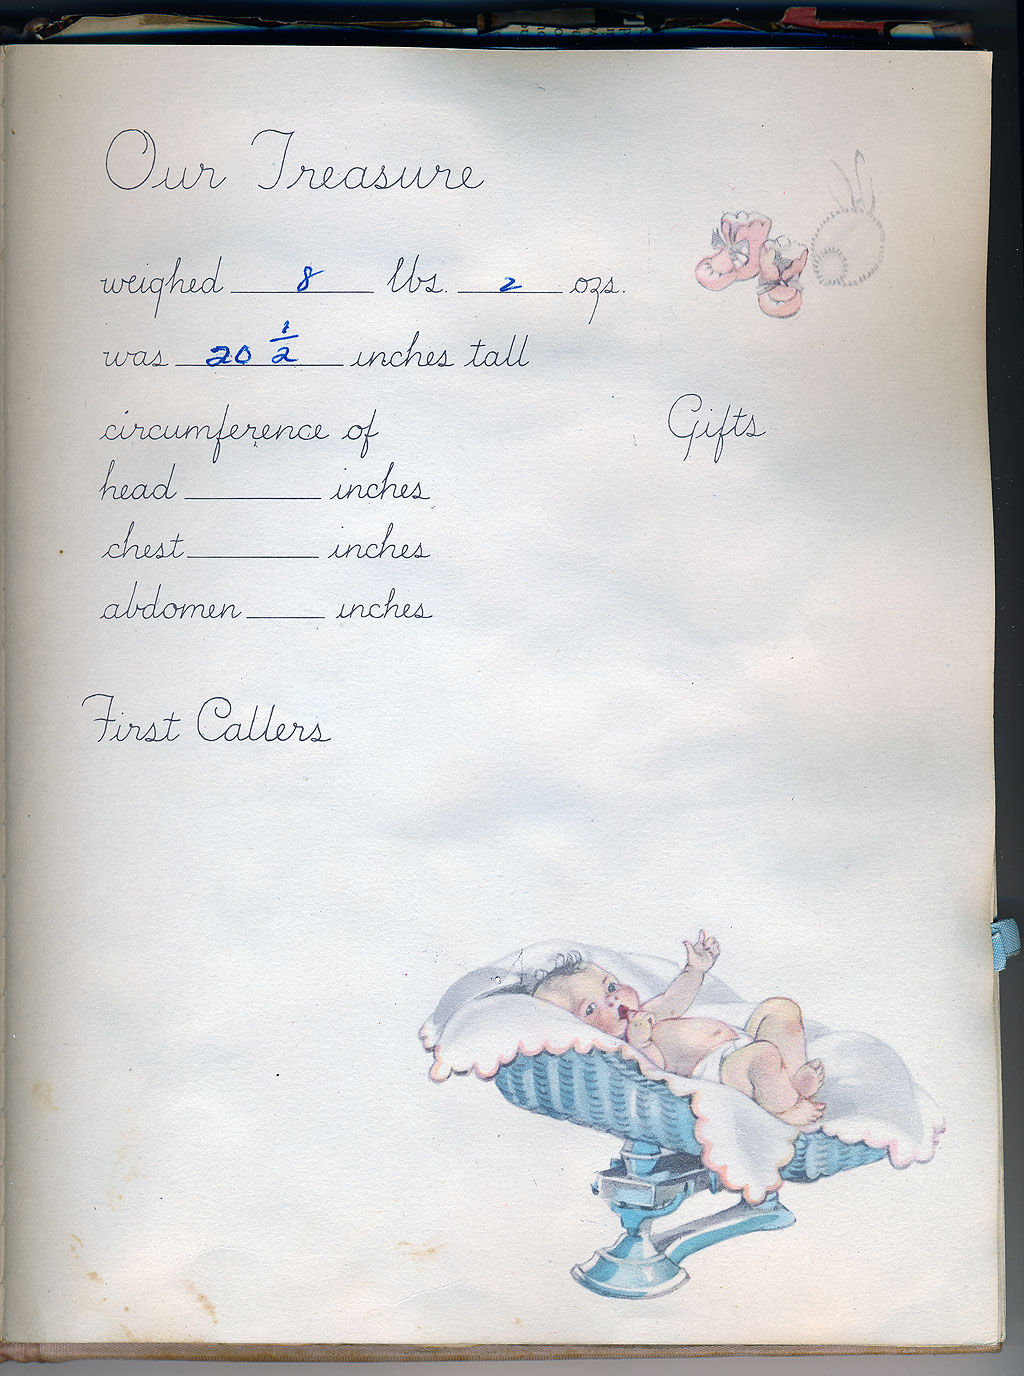 Our Treasure
weighed 8 lbs. 2 ozs.
was 20 1/2 inches tall
circumference of
head ______ inches
chest ______ inches
abdomen ____ inches
Gifts
First Callers